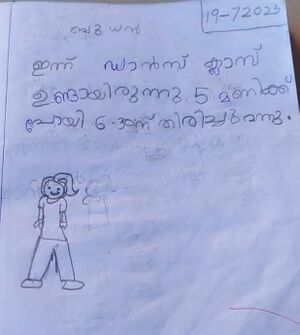 19-72023
ബുധൻ
ഇന്ന് ഡാൻസ് ക്ലാസ്
ഉണ്ടായിരുന്നു. 5 മണിക്ക്
പോയി 6.30ന് തിരിച്ചുവന്നു.